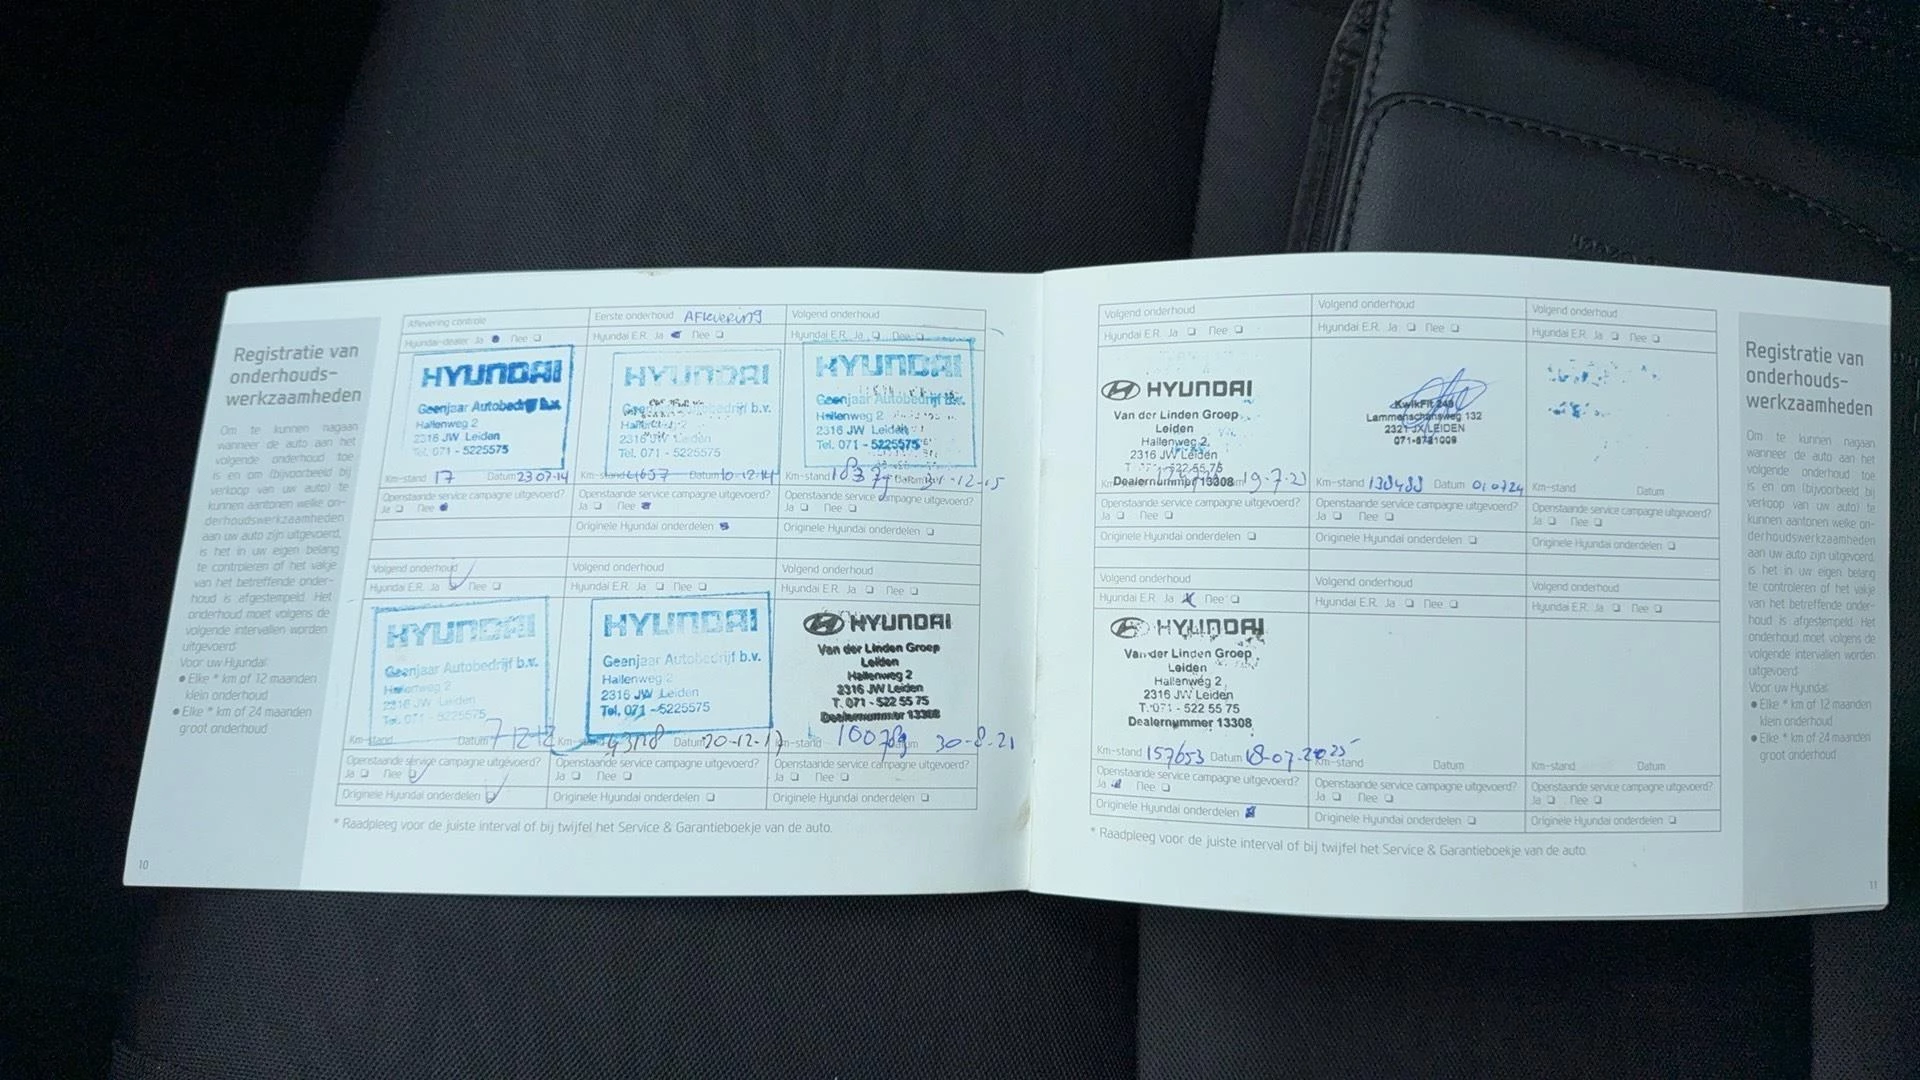 Registratie van
onderhouds-
werkzaamheden
Om te kunnen nagaan
wanneer de auto aan het
volgende onderhoud toe
is en om (bijvoorbeeld bij
verkoop van uw auto) te
kunnen aantonen welke on-
derhoudswerkzaamheden
aan uw auto zijn uitgevoerd,
is het in uw eigen belang
te controleren of het vakje
van het betreffende onder-
houd is afgestempeld. Het
onderhoud moet volgens de
volgende intervallen worden
uitgevoerd.
Voor uw Hyundai:
● Elke * km of 12 maanden
klein onderhoud
● Elke * km of 24 maanden
groot onderhoud
10
Aflevering controle
Hyundai-dealer Ja Nee ❑
HYUNDAI
Geenjaar Autobedrijf b.v.
Hallenweg 2
2316 JW Leiden
Tel. 071 - 5225575
Km-stand 17 Datum 23 07-14
Openstaande service campagne uitgevoerd?
Ja ❑ Nee
Eerste onderhoud AFLEVERING
Hyundai E.R. Ja Nee ❑
HYUNDAI
b.v.
2316 JW Leiden
Tel. 071 - 5225575
Km-stand Datum 10-12-14
Openstaande service campagne uitgevoerd?
Ja ❑ Nee
Originele Hyundai onderdelen
Volgend onderhoud
Hyundai E.R. Ja ❑ Nee ❑
HYUNDAI
Geenjaar Autobedrijf b.v.
Hallenweg 2
2316 JW Leiden
Tel. 071 - 5225575
Km-stand Datum
Openstaande service campagne uitgevoerd?
Ja ❑ Nee ❑
Originele Hyundai onderdelen ❑
Volgend onderhoud
Hyundai E.R. Ja Nee ❑
HYUNDAI
Geenjaar Autobedrijf b.v.
Hallenweg 2
2316 JW Leiden
Tel. 071 - 5225575
Km-stand Datum
Openstaande service campagne uitgevoerd?
Ja ❑ Nee
Originele Hyundai onderdelen
Volgend onderhoud
Hyundai E.R. Ja ❑ Nee ❑
HYUNDAI
Geenjaar Autobedrijf b.v.
Hallenweg 2
2316 JW Leiden
Tel. 071 - 5225575
Km-stand Datum 20-12-17
Openstaande service campagne uitgevoerd?
Ja ❑ Nee ❑
Originele Hyundai onderdelen ❑
Volgend onderhoud
Hyundai E.R. Ja ❑ Nee ❑
HYUNDAI
Van der Linden Groep
Leiden
Hallenweg 2
2316 JW Leiden
T. 071 - 522 55 75
Dealernummer 13308
Km-stand 100789 Datum 30-8-21
Openstaande service campagne uitgevoerd?
Ja ❑ Nee ❑
Originele Hyundai onderdelen ❑
* Raadpleeg voor de juiste interval of bij twijfel het Service & Garantieboekje van de auto.
Volgend onderhoud
Hyundai E.R. Ja ❑ Nee ❑
HYUNDAI
Van der Linden Groep
Leiden
Hallenweg 2
2316 JW Leiden
Dealernummer 13308
Openstaande service campagne uitgevoerd?
Ja ❑ Nee ❑
Originele Hyundai onderdelen ❑
Volgend onderhoud
Hyundai E.R. Ja ❑ Nee ❑
KwikFit
Lammenschansweg 132
2321 JX LEIDEN
Km-stand Datum
Openstaande service campagne uitgevoerd?
Ja ❑ Nee ❑
Originele Hyundai onderdelen ❑
Volgend onderhoud
Hyundai E.R. Ja ❑ Nee ❑
Km-stand Datum
Openstaande service campagne uitgevoerd?
Ja ❑ Nee ❑
Originele Hyundai onderdelen ❑
Volgend onderhoud
Hyundai E.R. Ja Nee ❑
HYUNDAI
Van der Linden Groep
Leiden
Hallenweg 2
2316 JW Leiden
T. 071 - 522 55 75
Dealernummer 13308
Km-stand 157653 Datum
Openstaande service campagne uitgevoerd?
Ja Nee ❑
Originele Hyundai onderdelen
Volgend onderhoud
Hyundai E.R. Ja ❑ Nee ❑
Km-stand Datum
Openstaande service campagne uitgevoerd?
Ja ❑ Nee ❑
Originele Hyundai onderdelen ❑
Volgend onderhoud
Hyundai E.R. Ja ❑ Nee ❑
Km-stand Datum
Openstaande service campagne uitgevoerd?
Ja ❑ Nee ❑
Originele Hyundai onderdelen ❑
* Raadpleeg voor de juiste interval of bij twijfel het Service & Garantieboekje van de auto.
Registratie van
onderhouds-
werkzaamheden
Om te kunnen nagaan
wanneer de auto aan het
volgende onderhoud toe
is en om (bijvoorbeeld bij
verkoop van uw auto) te
kunnen aantonen welke on-
derhoudswerkzaamheden
aan uw auto zijn uitgevoerd,
is het in uw eigen belang
te controleren of het vakje
van het betreffende onder-
houd is afgestempeld. Het
onderhoud moet volgens de
volgende intervallen worden
uitgevoerd.
Voor uw Hyundai:
● Elke * km of 12 maanden
klein onderhoud
● Elke * km of 24 maanden
groot onderhoud
11